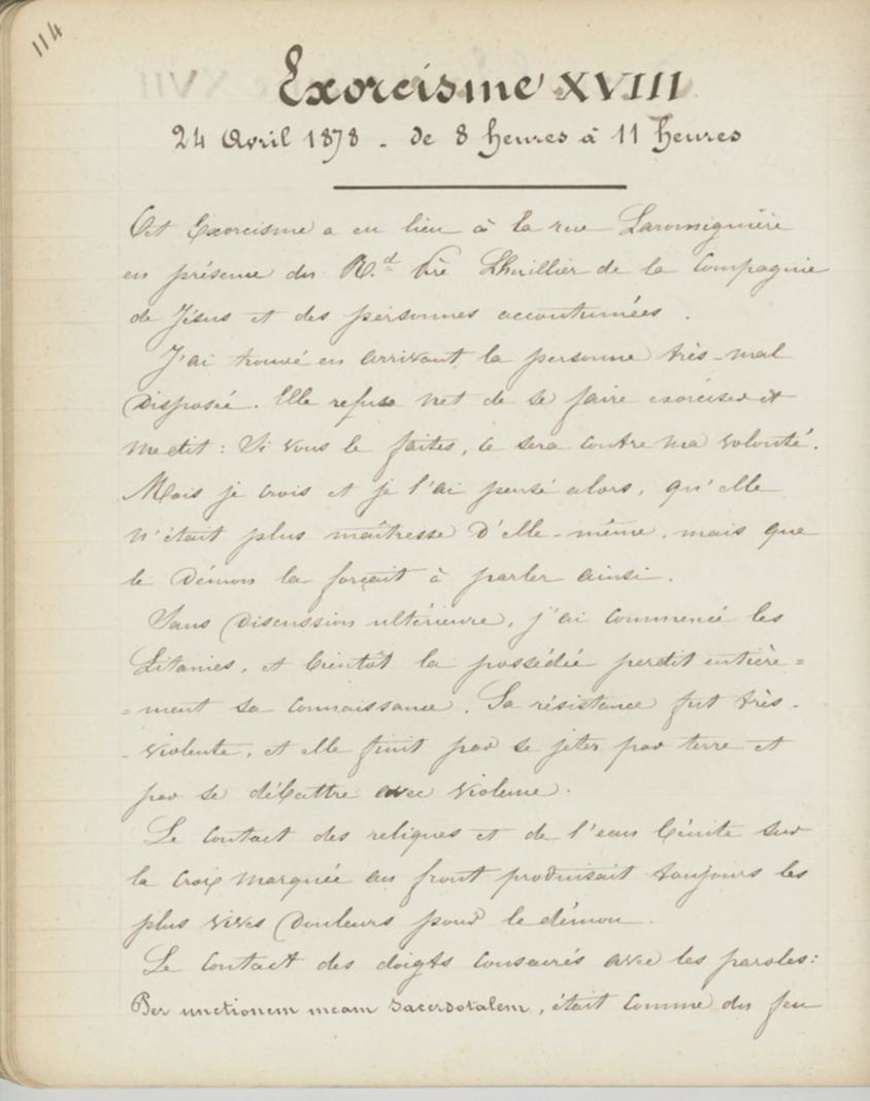 114
Exorcisme XVIII
24 Avril 1878 - de 8 heures à 11 heures
Cet Exorcisme a eu lieu à la rue Laromiguière
en présence du R.d Père Lhuillier de la Compagnie
de Jésus et des personnes accoutumées.
J'ai trouvé en arrivant la personne très-mal
disposée. Elle refusa net de se faire exorciser et
me dit : Si vous le faites, ce sera contre ma volonté.
Mais je crois et je l'ai pensé alors, qu'elle
n'était plus maîtresse d'elle-même, mais que
le Démon la forçait à parler ainsi.
Sans discussion ultérieure, j'ai commencé les
Litanies, et bientôt la possédée perdit entière=
=ment sa connaissance. Sa résistance fut très-
-violente, et elle finit par se jeter par terre et
par se débattre avec violence.
Le contact des reliques et de l'eau bénite sur
la croix marquée au front produisait toujours les
plus vives Douleurs pour le démon.
Le contact des doigts consacrés avec les paroles :
Per unctionem meam sacerdotalem, était comme du feu